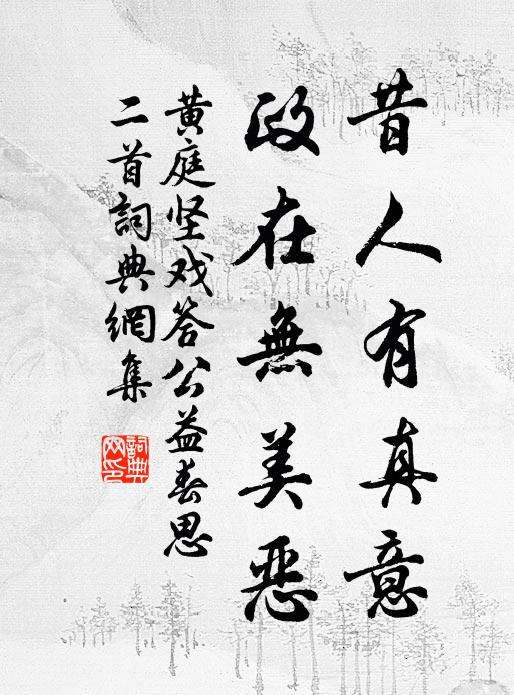 昔人有真意
政在無美惡
黄庭坚戏答公益春思
二首詞典網集
詞典
网印